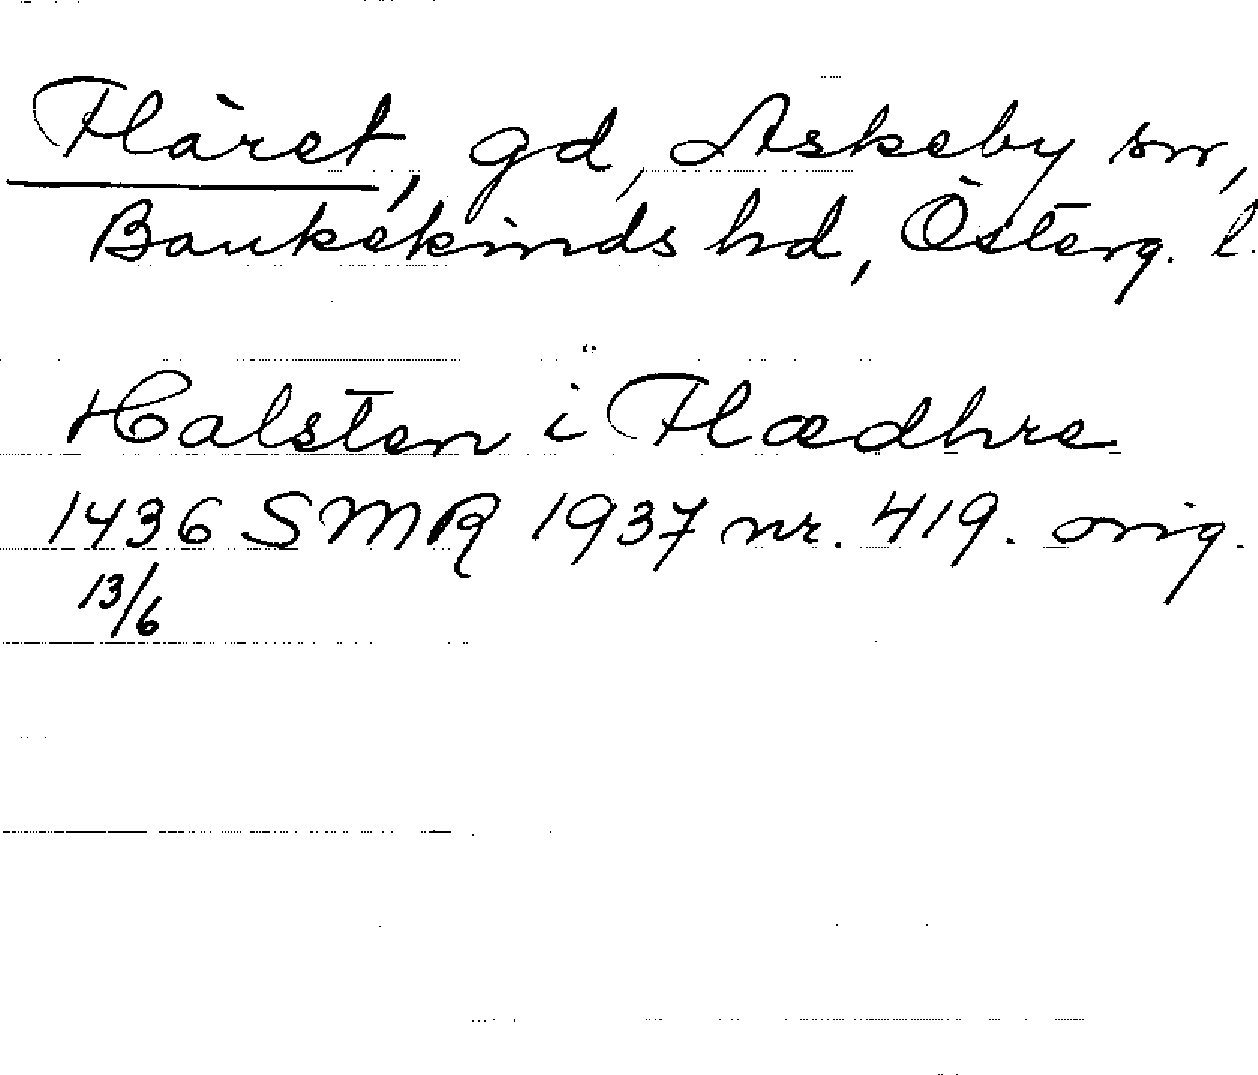 Fläret, gd, Askeby sn,
Bankekinds hd, Österg. l.
Halsten i Flædhre
1436 SMR 1937 nr. 419. orig.
13/6